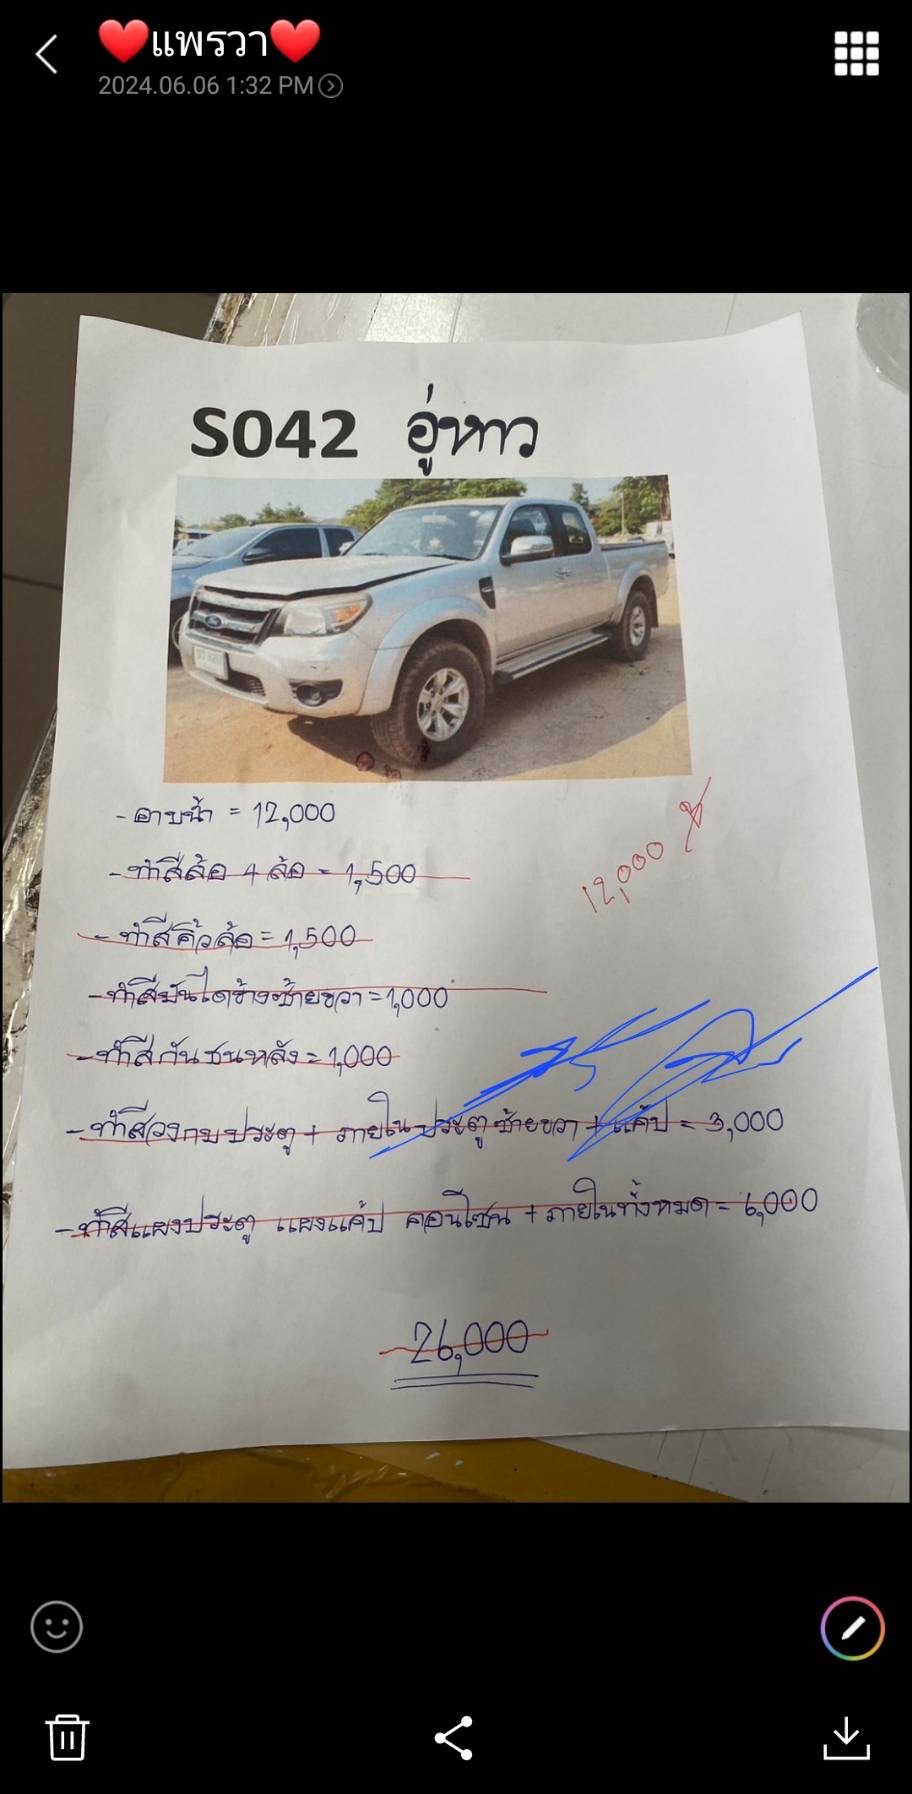 ❤️แพรวา❤️
2024.06.06 1:32 PM
S042 อู่หาว
- อาบน้ำ = 12,000
12,000
- ทำสีล้อ 4 ล้อ = 1,500
- ทำสีคิ้วล้อ = 1,500
- ทำสีบันไดข้างซ้ายขวา = 1,000
- ทำสีกันชนหลัง = 1,000
- ทำสีวงกบประตู + ภายในประตูซ้ายขวา + แค้ป = 3,000
- ทำสีแผงประตู แผงแค้ป คอนโซน + ภายในทั้งหมด = 6,000
26,000